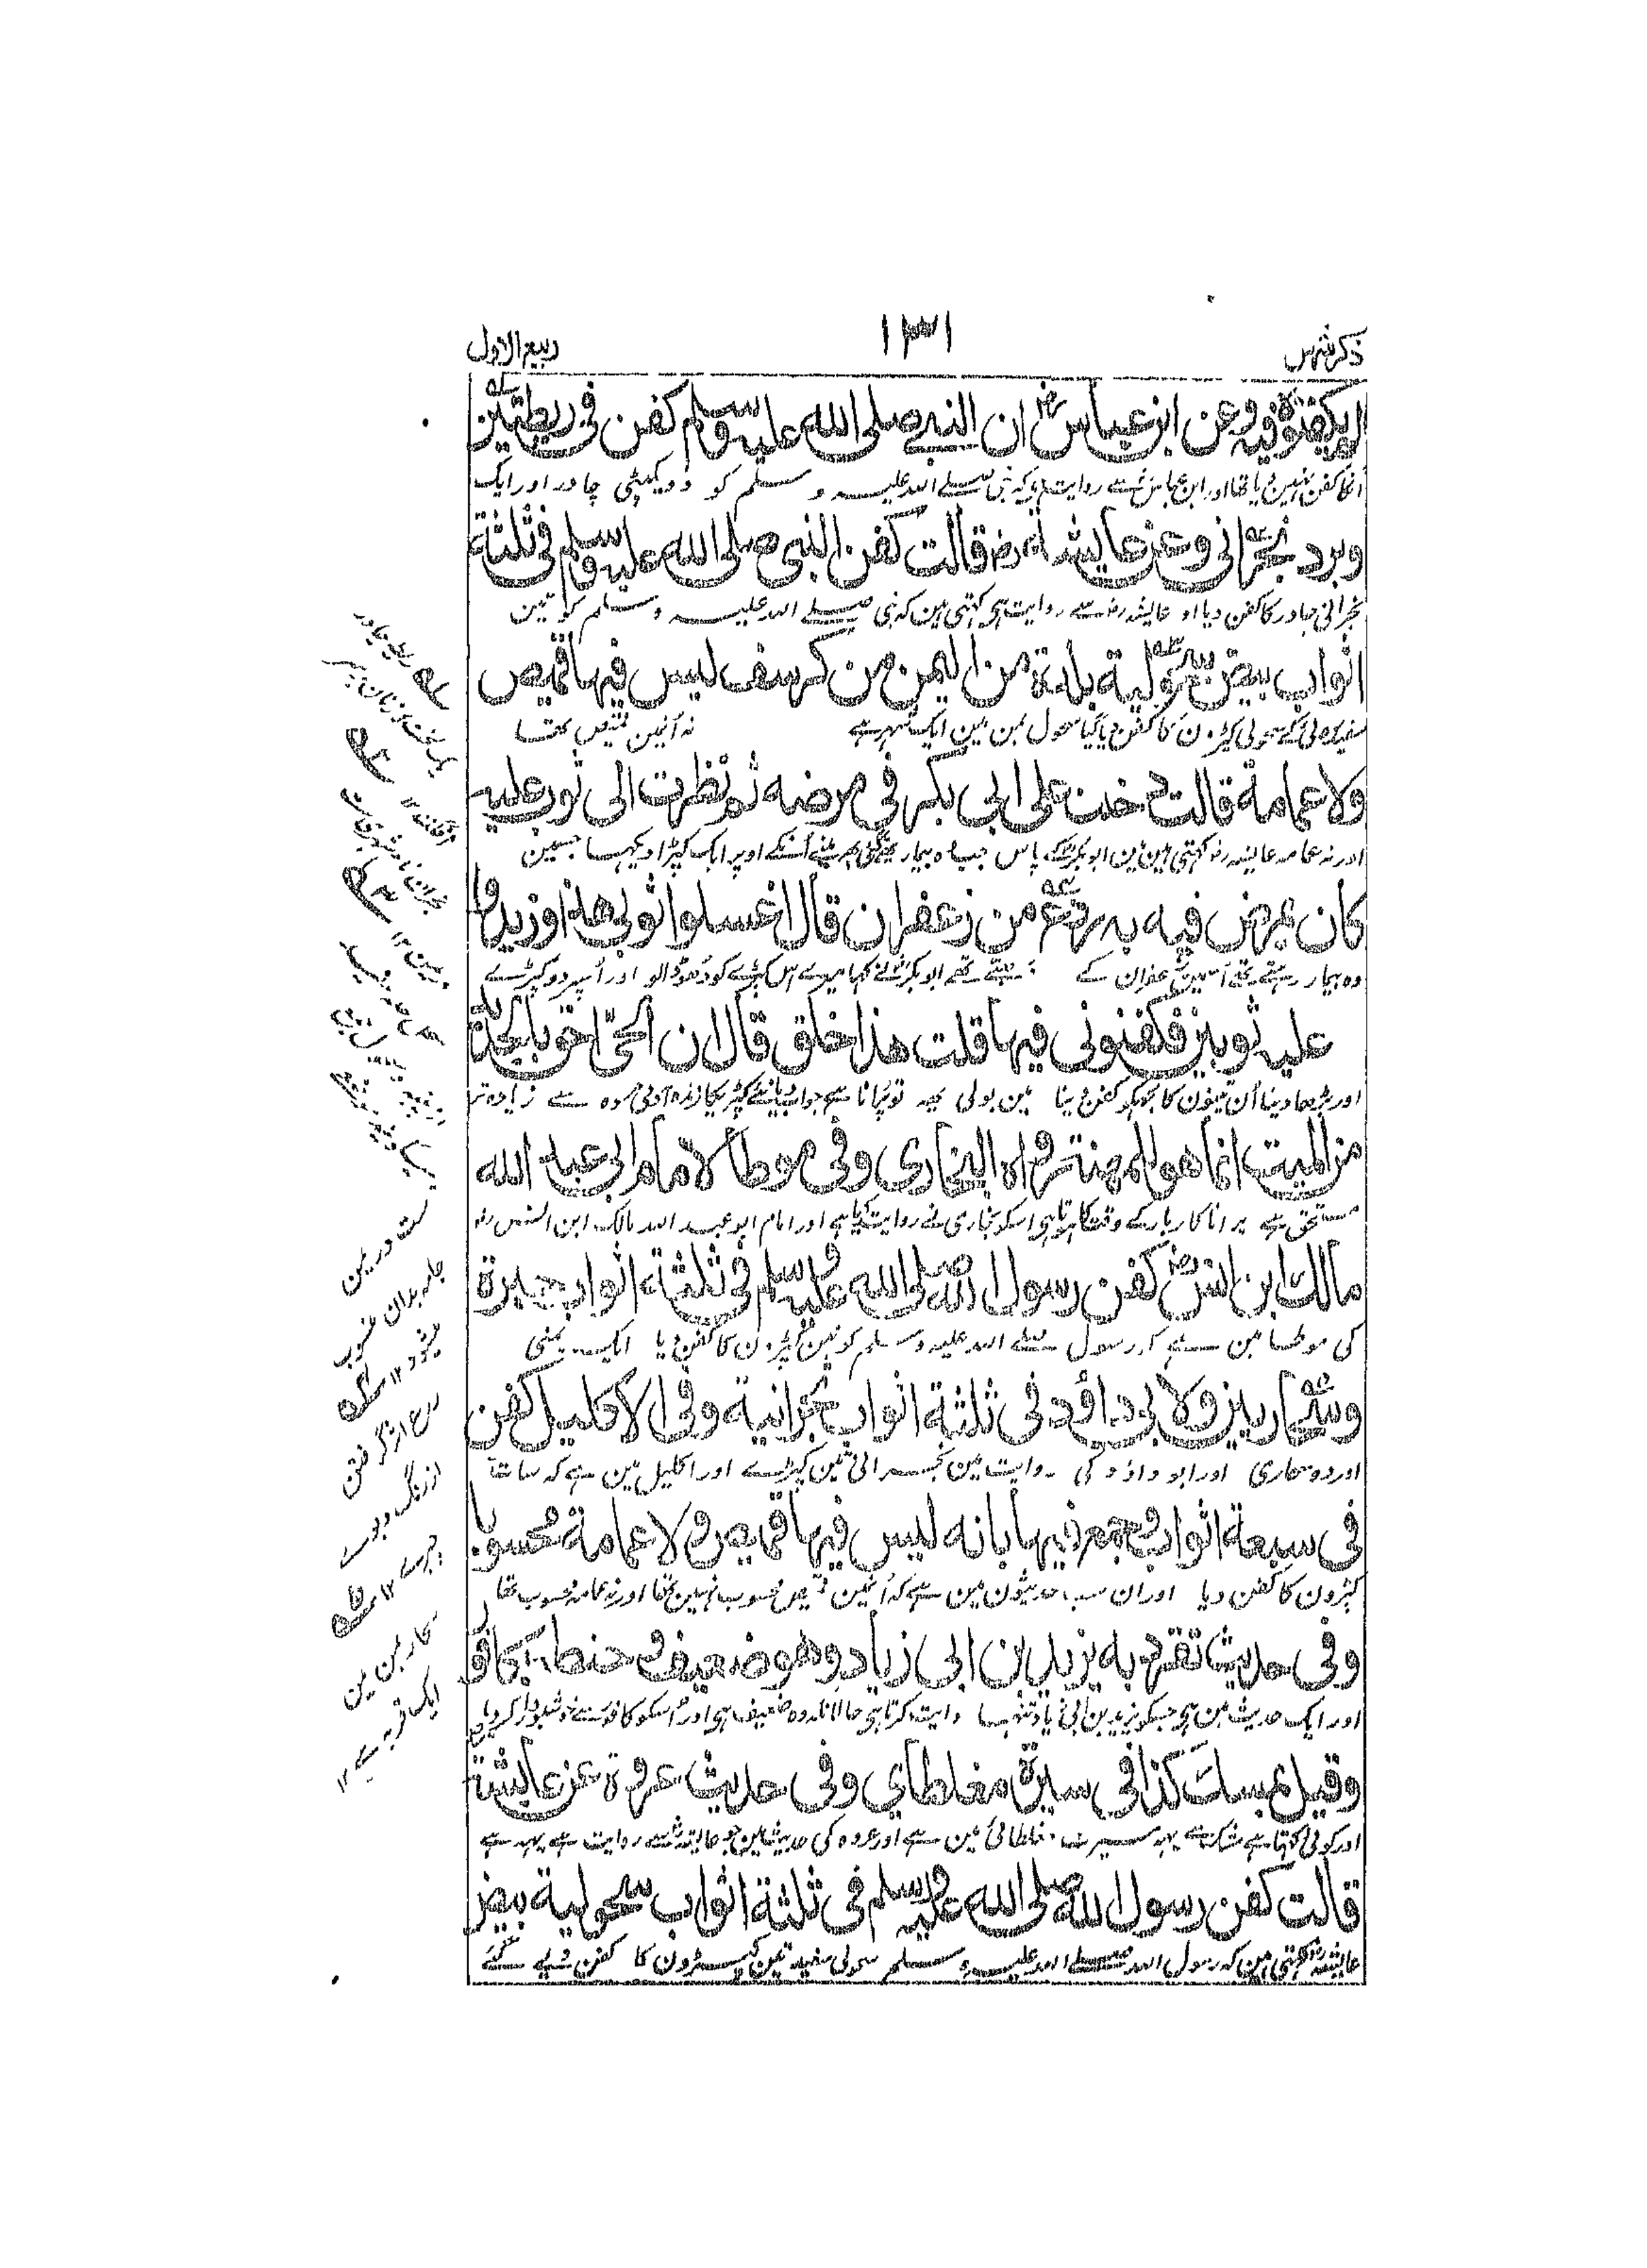 ذکر شہر س
۱۳۱
ربیع الاول
لم یکفنوہ فیہ وعن ابن عباس رض ان النبی صلی اللہ علیہ وسلم کفن فی ریطتین
انکا کفن نہین دیا تھا اور ابن عباس رض سے روایت ہی کہ نبی صلے اللہ علیہ و سلم کو دو یکپٹی چادر اور ایک
وبرد نجرانی وعن عایشۃ رض قالت کفن النبی صلی اللہ علیہ وسلم فی ثلثۃ
نجرانی چادر کا کفن دیا او عایشہ رض سے روایت ہی کہتی ہین کہ نبی صلے اللہ علیہ و سلم کو تین
اثواب بیض سحولیۃ بلدۃ من الیمن من کرسف لیس فیہا قمیص
سفید روئی کے سحولی کپڑون کا کفن دیا گیا سحول یمن مین ایک شہر ہے نہ انمین قمیص تھا
ولا عمامۃ قالت دخلت علی ابی بکر فی مرضہ ثم نظرت الی ثوب علیہ
اور نہ عمامہ عایشہ رض کہتی ہین مین ابوبکر رض کے پاس جب وہ بیمار تھے گئی پھر مینے اُنکے اوپر ایک کپڑا دیکہا جسمین
کان یمرض فیہ بہ ردع من زعفران قال اغسلوا ثوبی ہذا وزیدوا
وہ بیمار رہتے تھے اُسمین زعفران کے دہبے تھے ابوبکر رض نے کہا میرے اس کپڑے کو دھو ڈالو اور اُسپر دو کپڑے
علیہ ثوبین فکفنونی فیہا قلت ہذا خلق قال ان الحیّ احق بالجدید
اور بڑھا دینا اُن تینون کا مجہکو کفن دینا مین بولی یہہ تو پُرانا ہے جواب دیا نئے کپڑیکا زندہ آدمی مردہ سے زیادہ تر
من المیت انما ہو للمہنۃ رواہ البخاری وفی موطا لامام ابی عبد اللہ
مستحق ہے پرانا کاربار کے وقت کا ہوتا ہی اسکو بخاری نے روایت کیا ہے اور امام ابو عبد اللہ مالک ابن انس رض
مالک ابن انس رض کفن رسول اللہ صلی اللہ علیہ وسلم فی ثلثۃ اثواب حبرۃ
کی موطا مین ہے کہ رسول صلے اللہ علیہ و سلم کو تین کپڑون کا کفن دیا ایک یمنی
وسحاریین ولابی داؤد فی ثلثۃ اثواب نجرانیۃ وفی الاکلیل کفن
اور دو سحاری اور ابو داؤد کی روایت مین نجرانی تین کپڑے اور اکلیل مین ہے کہ سات
فی سبعۃ اثواب وجمع فیہا بانہ لیس فیہا قمیص ولا عمامۃ محسوبا
کپڑون کا کفن دیا اور ان سب حدیثون مین ہے کہ اُنمین قمیص محسوب نہین تھا اور نہ عمامہ محسوب تھا
وفی حدیث تفرد بہ یزید بن ابی زیاد وہو ضعیف وحنط بکافور
اور ایک حدیث مین ہی جسکو یزید بن ابی زیاد تنہا روایت کرتا ہی حالانکہ وہ ضعیف ہی اور اُسکو کافور سے خوشبودار کردیا
وقیل بمسک کذا فی سیرۃ مغلطای وفی حدیث عروۃ عن عایشۃ
اور کوئی کہتا ہے مشک سے یہہ سیرت مغلطائی مین ہے اور عروہ کی حدیث مین جو عایشہ رض سے روایت ہے یہہ ہے
قالت کفن رسول اللہ صلی اللہ علیہ وسلم فی ثلثۃ اثواب سحولیۃ بیض
عایشہ رض کہتی ہین کہ رسول اللہ صلے اللہ علیہ و سلم سحولی سفید تین کپڑون کا کفن دیے گئے
ریطہ چادر
یک لخت
ست در یمن
جامہ بدان منسوب
میشود ۱۲
ردع اثر گرفتن
از رنگ و بوے
چیزے ۱۲
سحار یمن مین
ایک قریہ ہے ۱۲